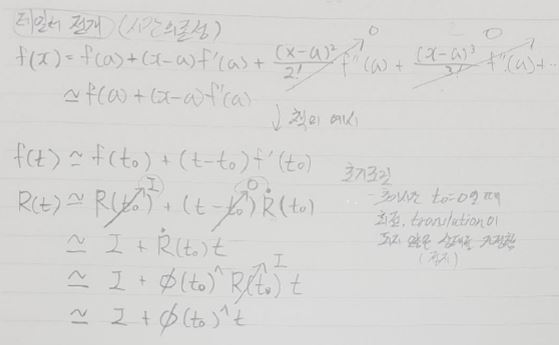 테일러 전개 (시간의존성)
f(x) = f(a) + (x-a)f'(a) + (x-a)²/2! f''(a) + (x-a)³/3! f'''(a) + ...
0 0
≃ f(a) + (x-a)f'(a)
↓ 책의 예시
f(t) ≃ f(t₀) + (t-t₀) f'(t₀)
R(t) ≃ R(t₀) + (t-t₀) Ṙ(t₀)
I 0
≃ I + Ṙ(t₀) t
≃ I + ϕ(t₀)^ R(t₀) t
I
≃ I + ϕ(t₀)^ t
초기조건
t₀=0일 때
회전, translation이
되지 않은 상태를